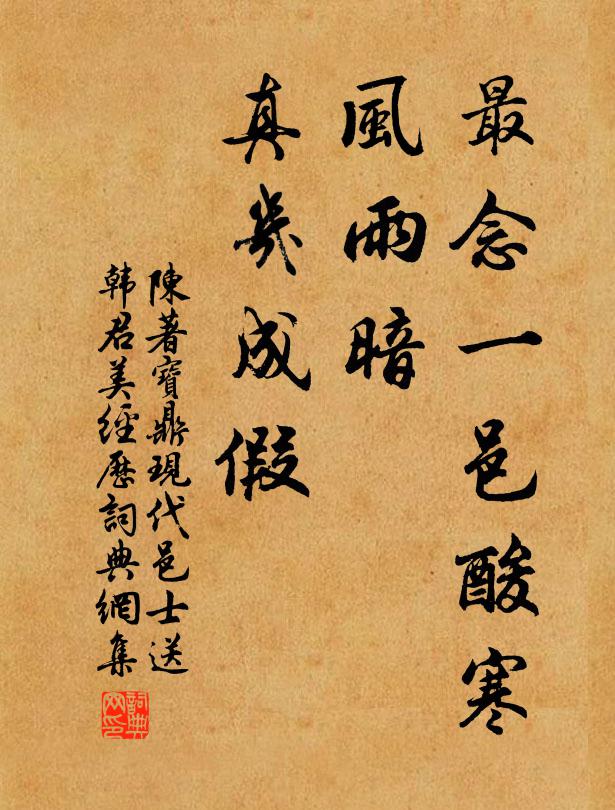 最念一邑酸寒
風雨暗
真幾成假
陳著寶鼎現代邑士送
韩君美經歷詞典網集
詞典网印